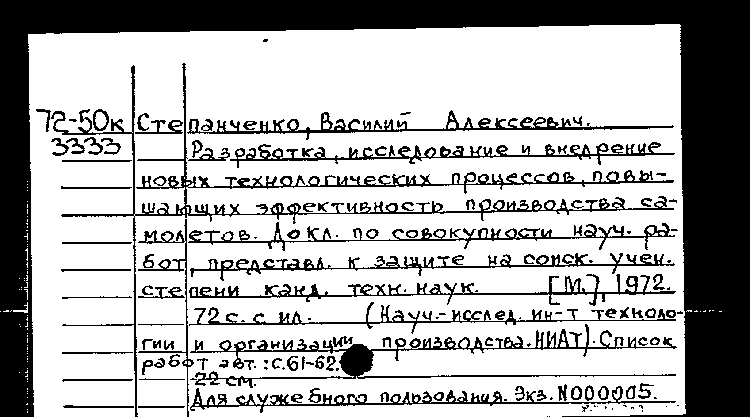 72-50к Степанченко, Василий Алексеевич.
3333 Разработка, исследование и внедрение
новых технологических процессов, повы-
шающих эффективность производства са-
молетов. Докл. по совокупности науч. ра-
бот, представл. к защите на соиск. учен.
степени канд. техн. наук. [М.], 1972.
72 с. с ил. (Науч.-исслед. ин-т техноло-
гии и организации производства. НИАТ). Список
работ авт.: с. 61-62.
22 см.
Для служебного пользования. Экз. N000005.